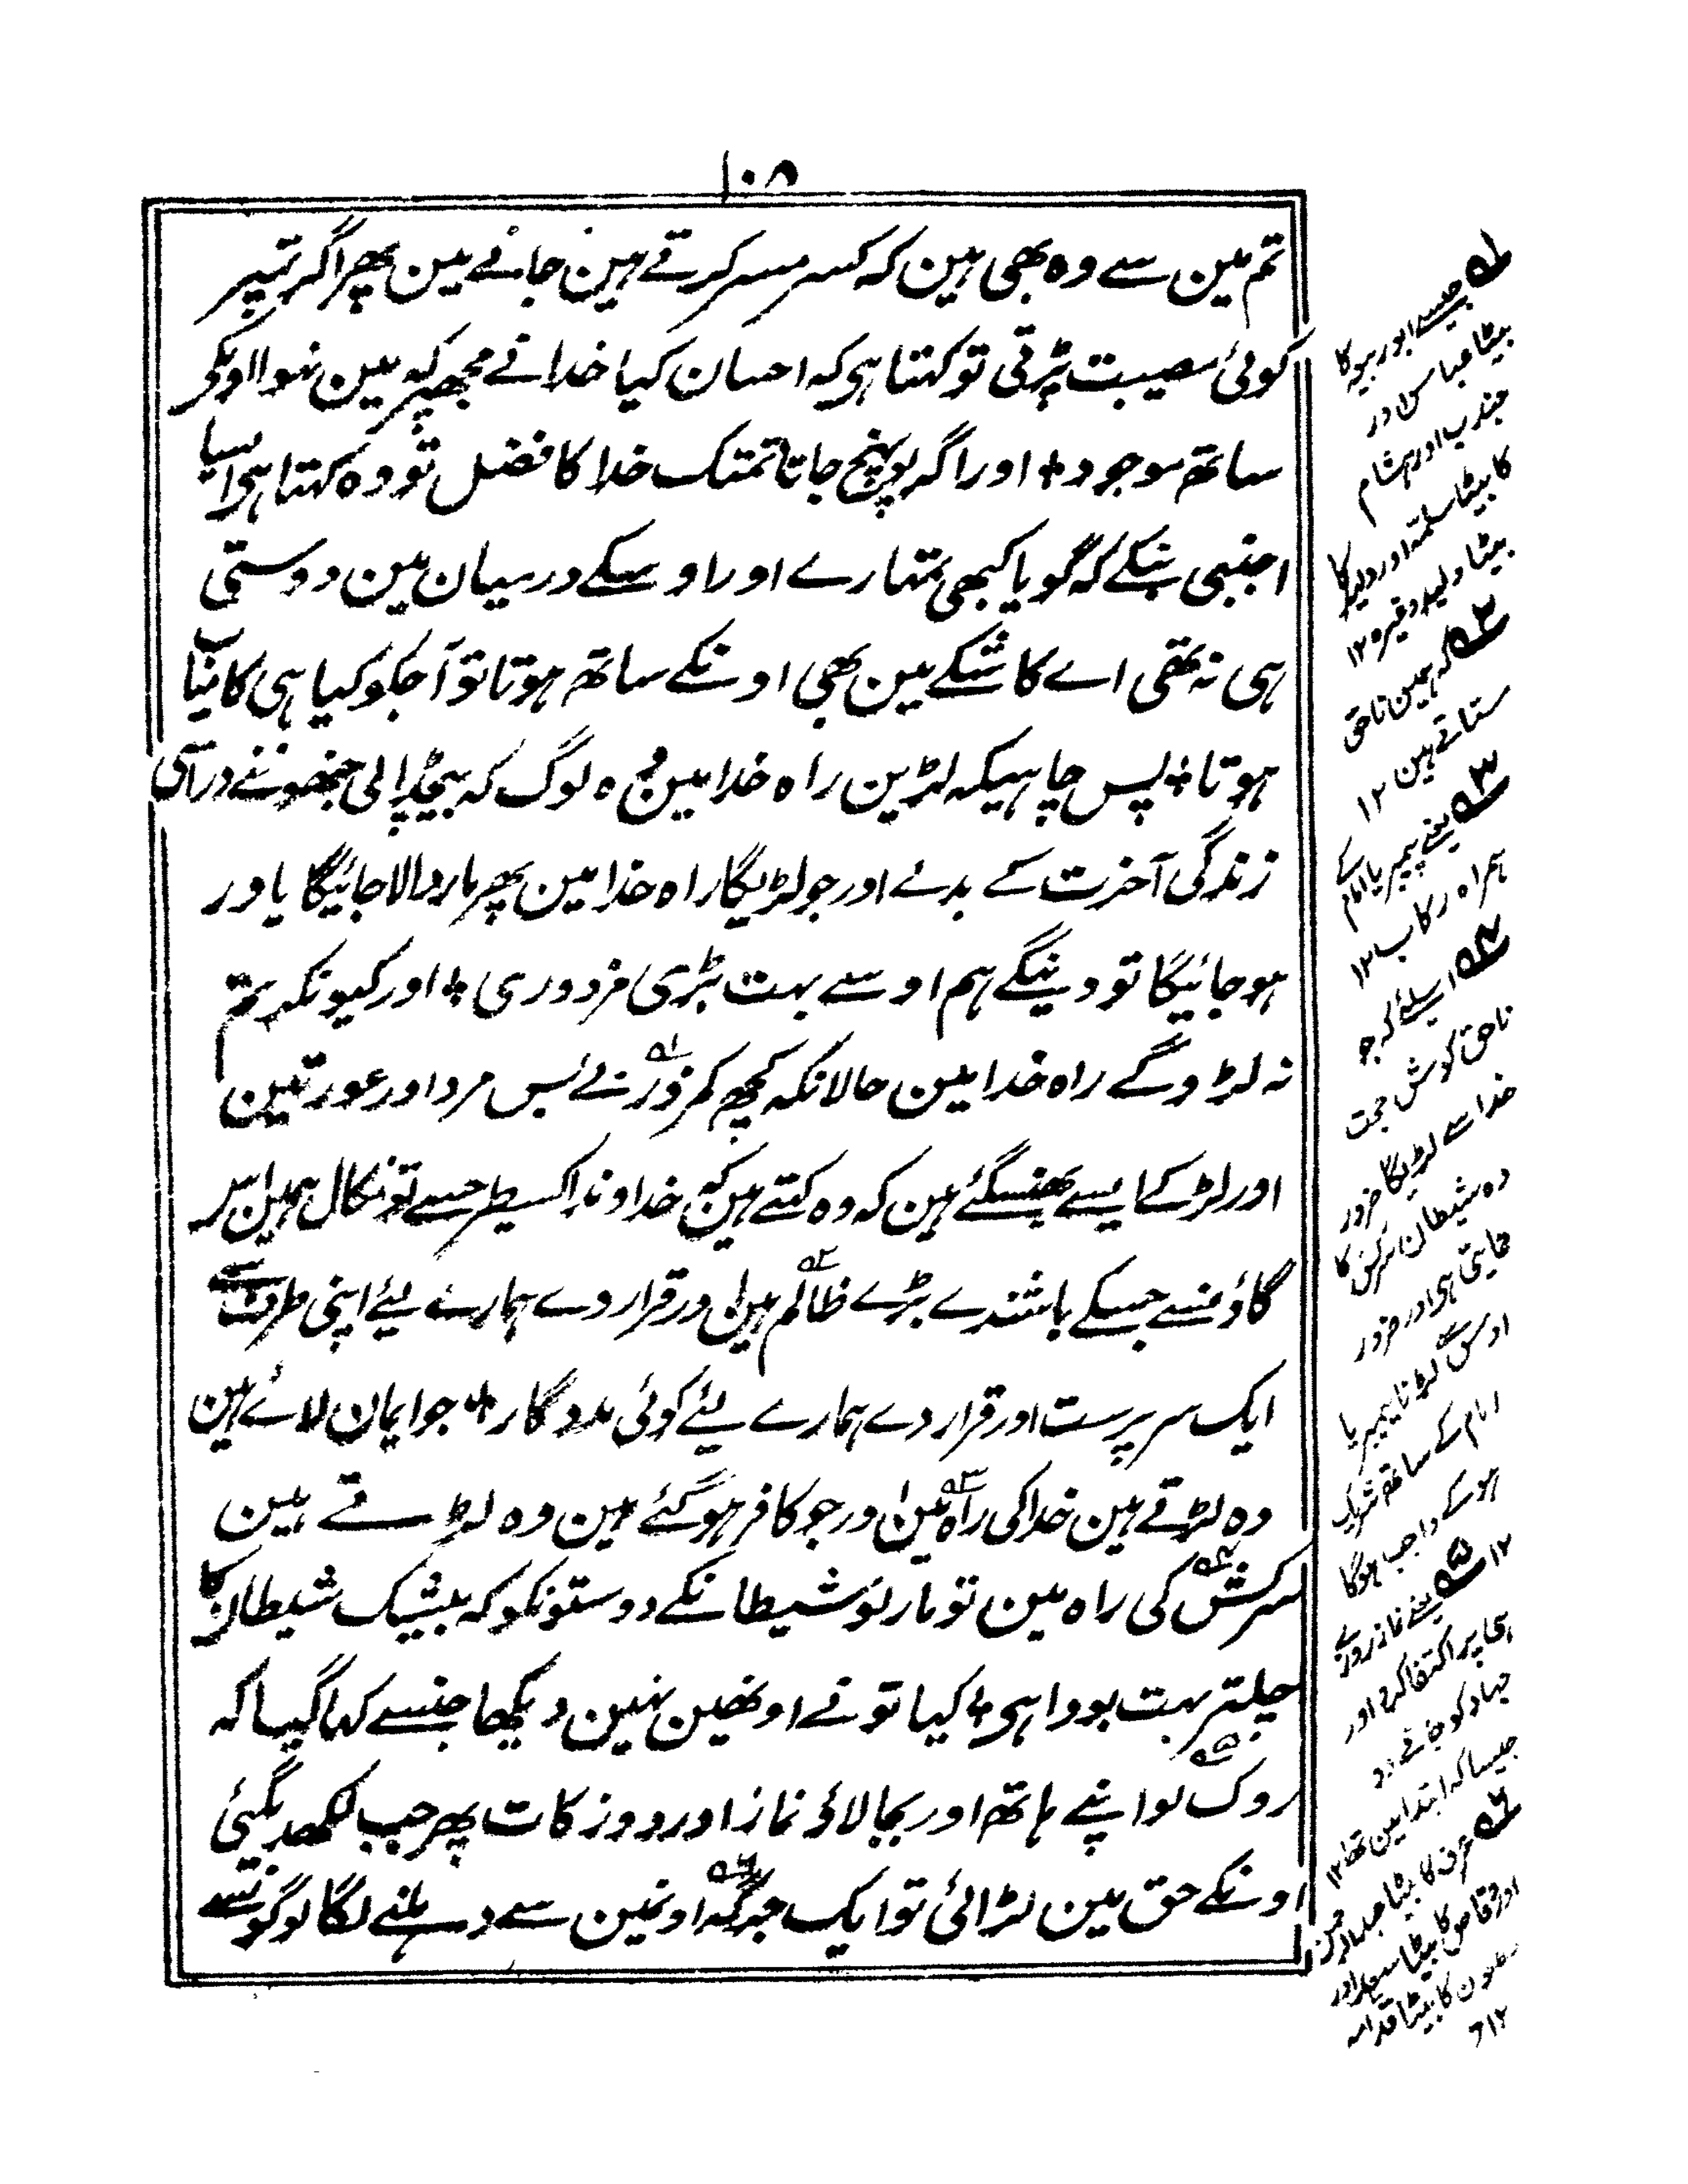 ۱۰۸
تم مین سے وہ بھی ہین کہ کسر مسر کرتے ہین جانے مین پھر اگر تمپر
کوئی مصیبت پڑتی تو کہتا ہی کہ احسان کیا خدا نے مجھپر کہ مین نہوا اونکے
ساتھ موجود + اور اگر پہونچ جاتا تمتک خدا کا فضل تو وہ کہتا ہی ایسا
اجنبی بنکے کہ گویا کبھی تمہارے اور اوسکے درمیان مین دوستی
ہی نہ تھی اے کاشکے مین بھی اونکے ساتھ ہوتا تو آجکو کیا ہی کامیاب
ہوتا + پس چاہیکہ لڑین راہ خدا مین وہ لوگ کہ بیچڈالی جنھونے دراسی
زندگی آخرت کے بدلے اور جو لڑیگا راہ خدا مین پھر مار ڈالا جائیگا یا ور
ہو جائیگا تو دینگے ہم اوسے بہت بڑی مزدوری + اور کیونکر تم
نہ لڑوگے راہ خدا مین حالانکہ کچھ کمزور بے بس مرد اور عورتین
اور لڑکے ایسے پھنسگئے ہین کہ وہ کہتے ہین کہ خداوندا کسیطرحسے تو نکال ہمین اس
گاؤنسے جسکے باشندے بڑے ظالم ہین اور قرار دے ہمارے لیئے اپنی طرف سے
ایک سرپرست اور قرار دے ہمارے لیئے کوئی مددگار + جو ایمان لائے ہین
وہ لڑتے ہین خدا کی راہ مین اور جو کافر ہو گئے ہین وہ لڑتے ہین
سرکش کی راہ مین تو مار لو شیطانکے دوستونکو کہ بیشک شیطان کا
چلتر بہت بودا ہی + کیا تو نے اونھین نہین دیکھا جنسے کہا گیا کہ
روک لو اپنے ہاتھ اور بجا لاؤ نماز اور دو زکات پھر جب لکھدیگئی
اونکے حق مین لڑائی تو ایک جرگہ اونمین سے دہلنے لگا لوگونسے
۱ جیسے ابو ربیعہ کا
بیٹا عباس اور
جندب اور ہشام
کا بیٹا سلمہ اور ولید کا
بیٹا ولید وغیرہ ۱۲
۲ کہ ہمین ناحق
ستاتے ہین ۱۲
۳ یعنے پیمبر یا امام کے
ہمراہ رکاب ۱۲
۴ اسلئے کہ جو
ناحق کوش حجت
خدا سے لڑیگا ضرور
وہ شیطان سرکش کا
حمایتی ہی اور ضرور
اوس سے لڑنا پیمبر یا
امام کے ساتھ شریک
ہوکے واجب ہوگا
۱۲ ۵ یعنے نماز روزے
ہی پر اکتفا کرو اور
جہاد کو جانے دو
جیسا کہ ابتدا مین تھا ۱۲
۶ عوف کا بیٹا عبدالرحمن
اور وقاص کا بیٹا سعد اور
مظعون کا بیٹا قدامہ
۱۲